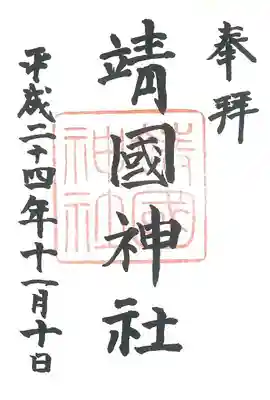 奉拝
靖國神社
平成二十四年十一月十日
靖國
神社